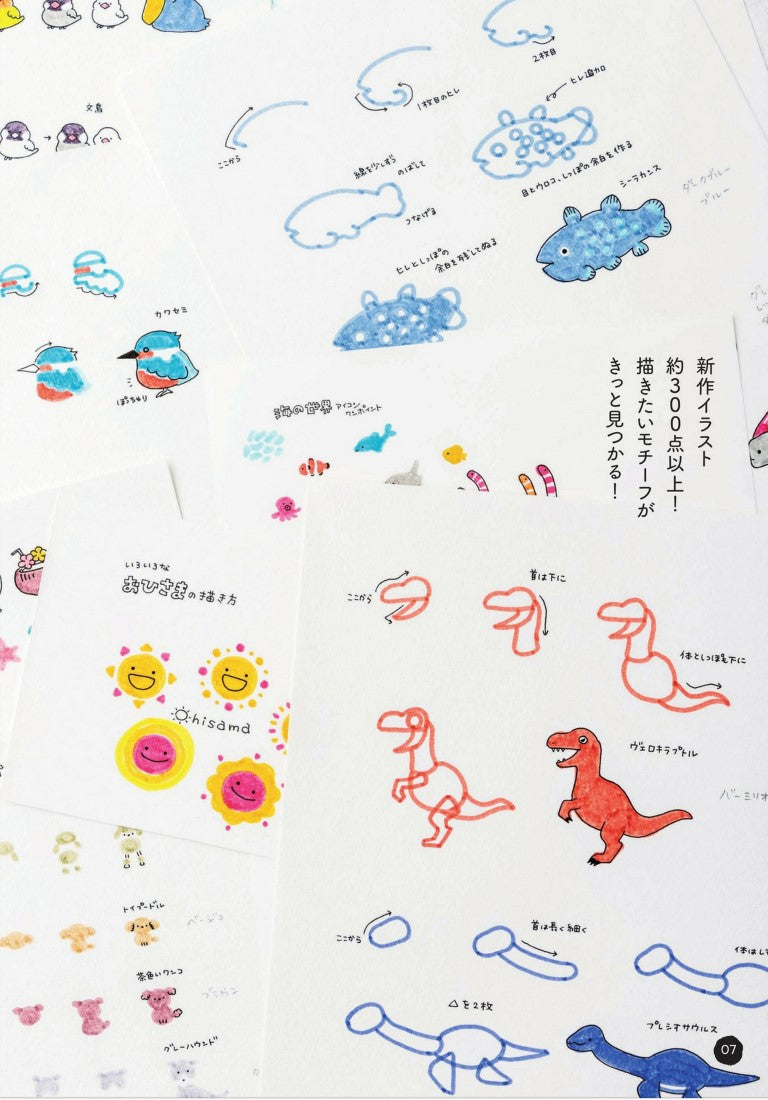 文鳥
2枚目
1枚目のヒレ
ヒレ追加
ここから
線を少しずつ
のばして
つなげる
目とウロコ、しっぽの余白を作る
シーラカンス
ダークブルー
ブルー
ヒレとしっぽの
余白を残してぬる
カワセミ
ぽっちゃり
海の世界 アイコン
ワンポイント
新作イラスト
約300点以上！
描きたいモチーフが
きっと見つかる！
いろいろな
おひさまの描き方
Ohisama
ここから
首は下に
体としっぽも下に
ヴェロキラプトル
バーミリオ
トイプードル
ベージュ
茶色いワンコ
ブラウン
グレーハウンド
ここから
首は長く細く
△を2枚
プレシオサウルス
07